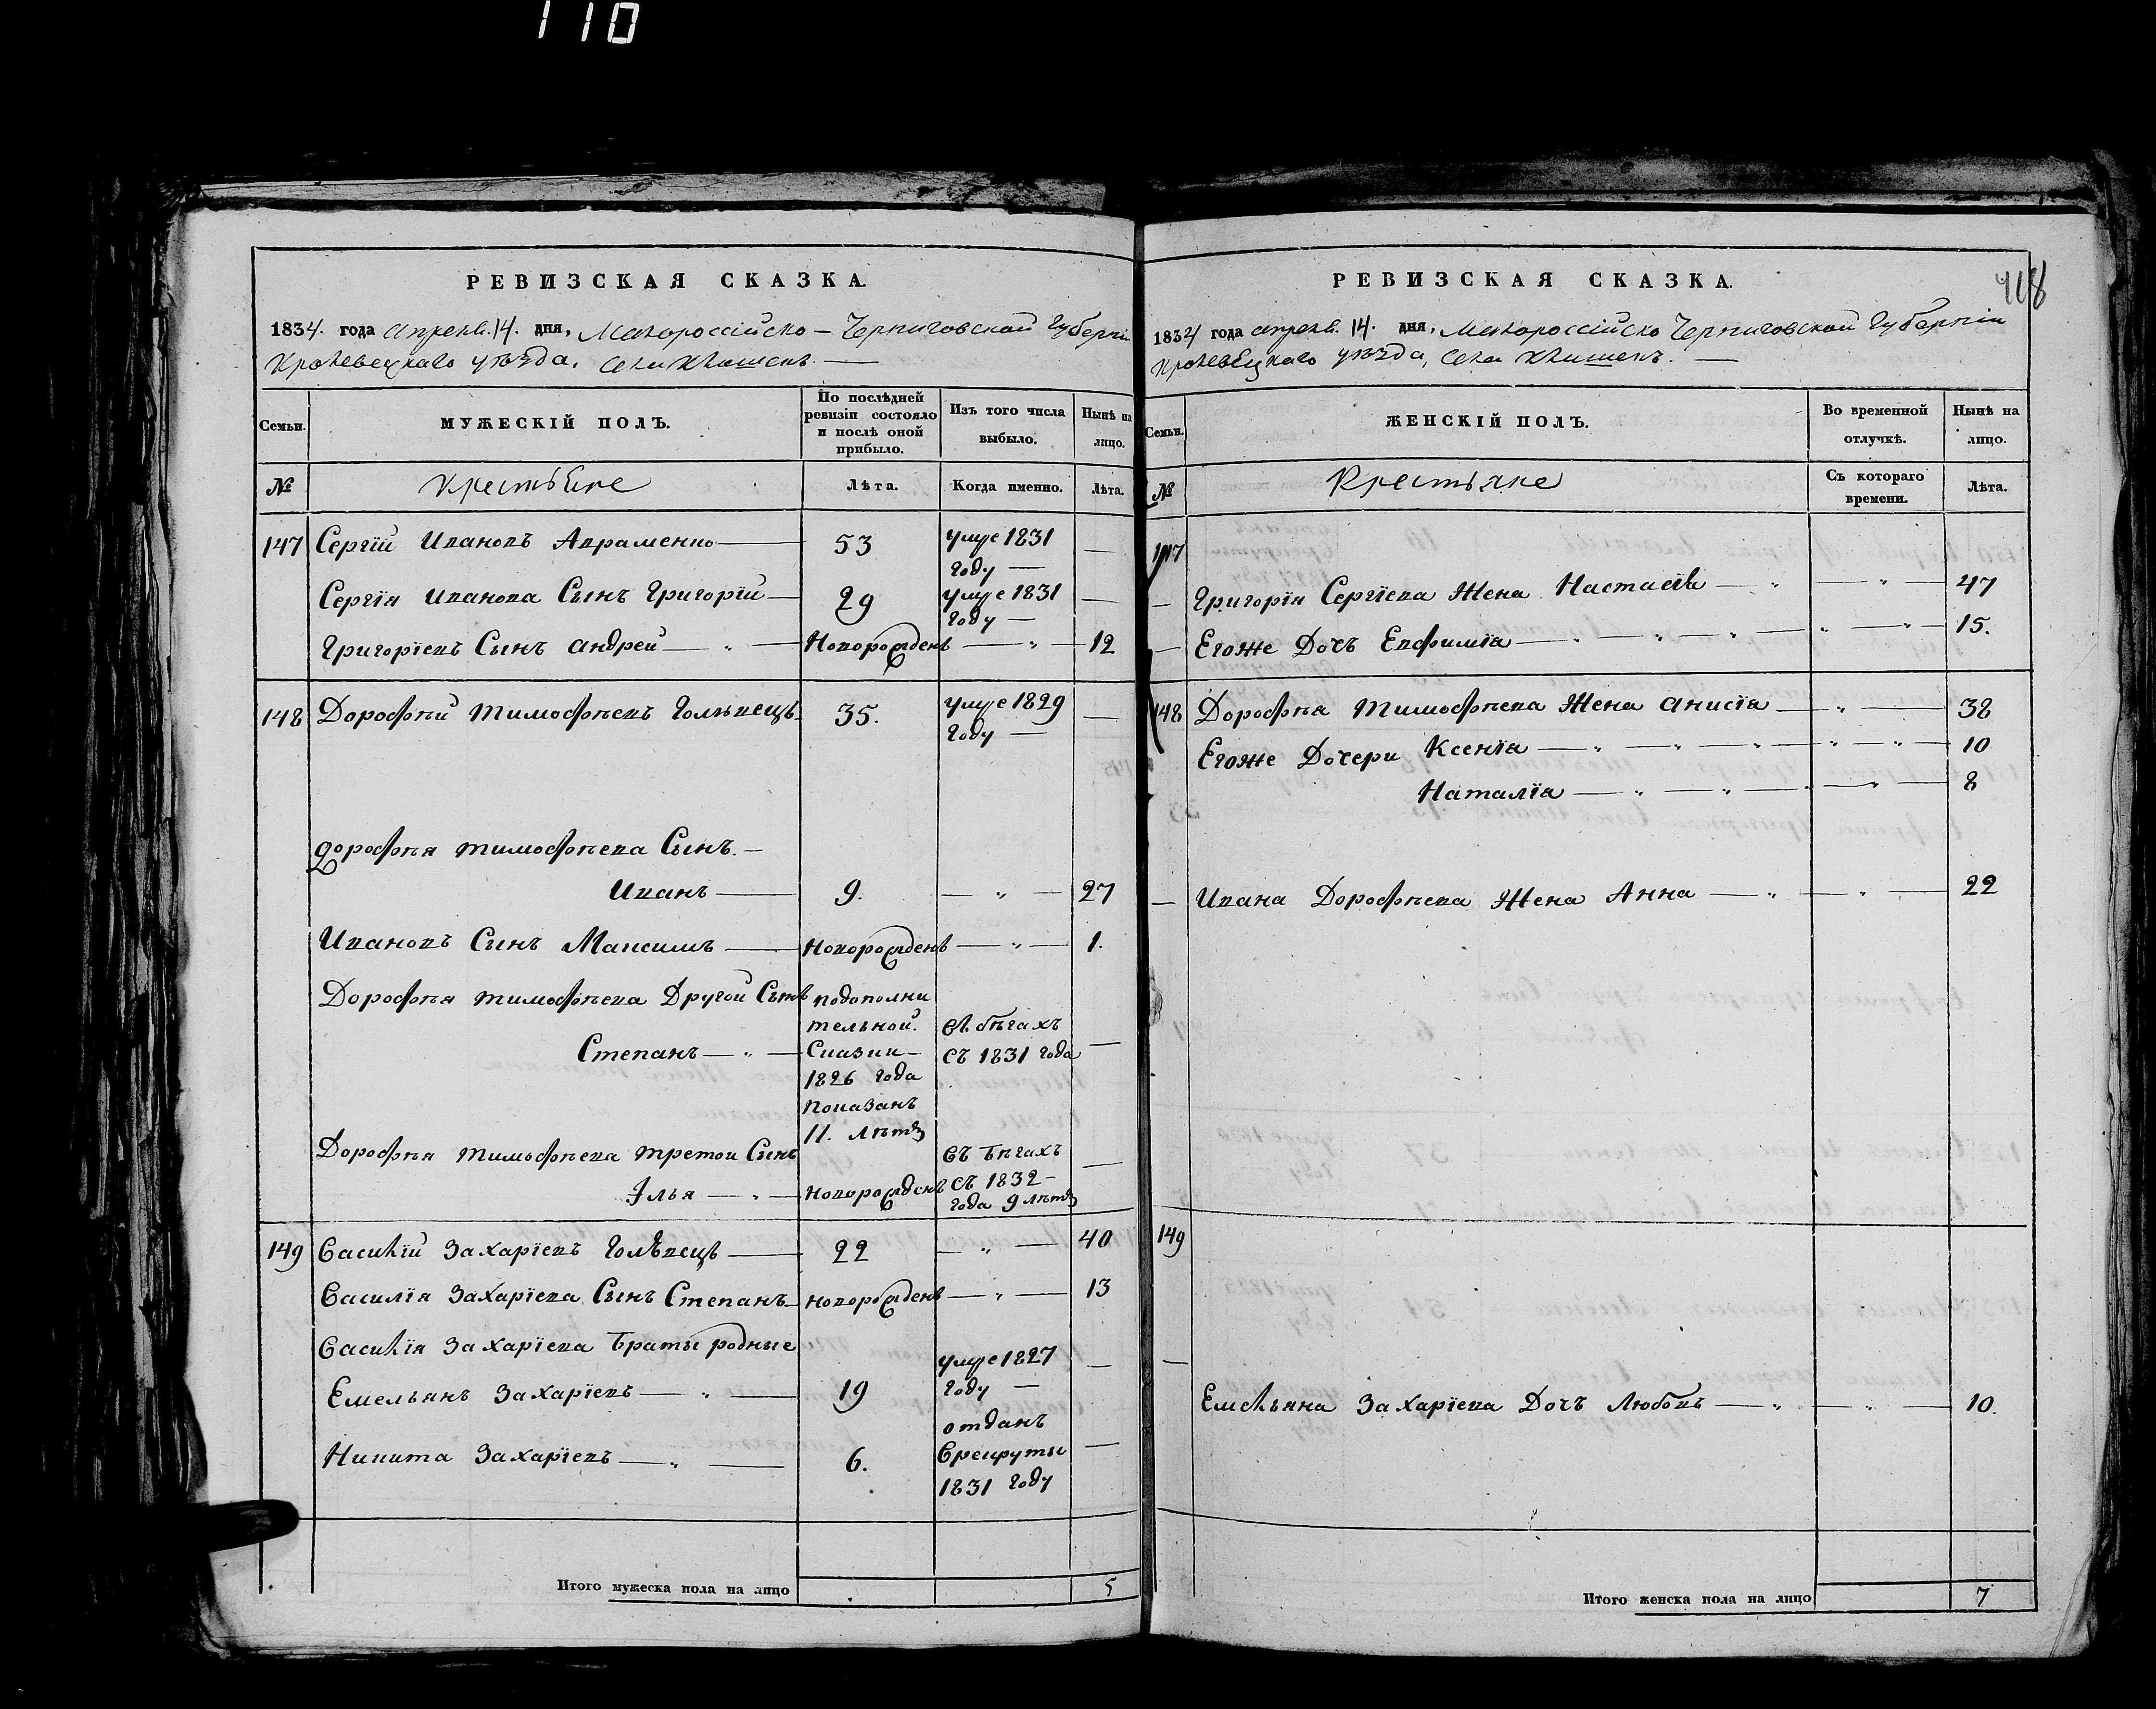 110
РЕВИЗСКАЯ СКАЗКА.
1834. года апрелѣ. 14. дня, Малороссійско – Черниговской Губерніи
Кролевецкаго уѣзда, села Клишекъ. —
Семьи.
МУЖЕСКІЙ ПОЛЪ.
По послѣдней ревизіи состояло и послѣ оной прибыло.
Изъ того числа выбыло.
Нынѣ на лицо.
№
Крестьяне
Лѣта.
Когда именно.
Лѣта.
147 Сергій Ивановъ Авраменко — 53 умре 1831 году — —
Сергія Иванова Сынъ Григорій — 29 умре 1831 году — —
Григоріевъ Сынъ Андрей — " — Новорожденъ — " — 12
148 Дорофѣй Тимофѣевъ Голѣвецъ 35. умре 1829 году — —
Дорофѣя Тимофѣева Сынъ. —
Иванъ — 9. — " — 27
Ивановъ Сынъ Максимъ — Новорожденъ — " — 1.
Дорофѣя Тимофѣева Другой Сынъ
Степанъ — " — подополнительной. Сказки — 1826 года показанъ 11. лѣтъ въ бѣгахъ съ 1831 года —
Дорофѣя Тимофѣева третои Сынъ
Илья — " — Новорожденъ въ бѣгахъ съ 1832 – года 9 лѣтъ —
149 Василій Захаріевъ Голѣвецъ — 22 — " — 40
Василія Захаріева Сынъ Степанъ — новорожденъ — " — 13
Василія Захаріева Браты родные
Емельянъ Захаріевъ — " — 19 умре 1827 году — —
Никита Захаріевъ — " — 6. отданъ Врекруты 1831 году —
Итого мужеска пола на лицо 5
418
РЕВИЗСКАЯ СКАЗКА.
1834 года апрелѣ. 14. дня, Малороссійско Черниговской Губерніи
Кролевецкаго уѣзда, села Клишекъ. —
Семьи.
ЖЕНСКІЙ ПОЛЪ.
Во временной отлучкѣ.
Нынѣ на лицо.
№
Крестьяне
Съ котораго времени.
Лѣта.
147
— Григорія Сергіева Жена Настасія — " — " — 47
— Егоже Дочъ Евфимія — " — " — " — " — " — 15.
148 Дорофѣа Тимофѣева Жена Анисія — " — 38
Егоже Дочери Ксенія — " — " — " — " — " — 10
Наталія — " — " — " — " — 8
— Ивана Дорофѣева Жена Анна — " — " — 22
149
—
Емельяна Захаріева Дочъ Любовъ — " — " — 10.
Итого женска пола на лицо 7